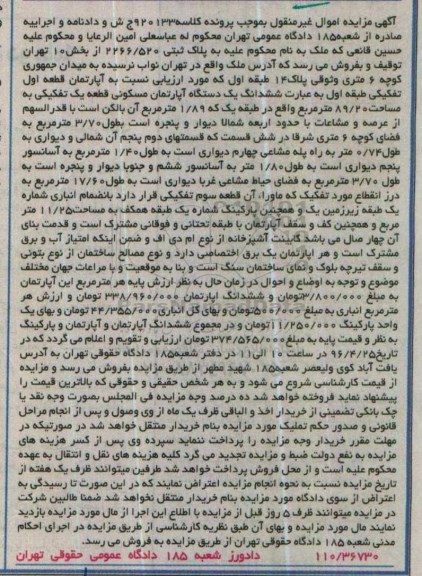 آگهی مزایده اموال غیرمنقول بموجب پرونده کلاسه ۹۲۰۱۳۳ج ش و دادنامه و اجراییه
صادره از شعبه۱۸۵ دادگاه عمومی تهران محکوم له عباسعلی امین الرعایا و محکوم علیه
حسین قانعی که ملک به نام محکوم علیه به پلاک ثبتی ۲۲۶۶/۵۲۰ از بخش۱۰ تهران
توقیف و بفروش می رسد که آدرس ملک واقع در تهران نواب نرسیده به میدان جمهوری
کوچه ۶ متری وثوقی پلاک۱۴ طبقه اول که مورد ارزیابی نسبت به آپارتمان قطعه اول
تفکیکی طبقه اول به عبارت ششدانگ یک دستگاه آپارتمان مسکونی قطعه یک تفکیکی به
مساحت۸۹/۲۰ مترمربع واقع در طبقه یک که ۱/۸۹ مترمربع آن بالکن است با قدرالسهم
از عرصه و مشاعات با حدود اربعه شمالا دیوار و پنجره است بطول۳/۷۰ مترمربع به
فضای کوچه ۶ متری شرقا در شش قسمت که قسمتهای دوم پنجم آن شمالی و دیواری به
طول۰/۷۴ متر به راه پله مشاعی چهارم دیواری است به طول۱/۴۰ مترمربع به آسانسور
پنجم دیواری است به طول ۱/۸۰ متر به آسانسور ششم و جنوبا دیوار و پنجره است به
طول ۳/۷۰ مترمربع به فضای حیاط مشاعی غربا دیواری است به طول۱۷/۶۰ مترمربع به
درز انقطاع مورد تفکیک که ماوراء آن قطعه سوم تفکیکی قرار دارد بانضمام انباری شماره
یک طبقه زیرزمین یک و همچنین پارکینگ شماره یک طبقه همکف به مساحت۱۱/۲۵ متر
مربع و همچنین کف و سقف آپارتمان با طبقه تحتانی و فوقانی مشترک است و قدمت بنای
آن چهار سال می باشد کابینت آشپزخانه از نوع ام دی اف و ضمن اینکه امتیاز آب و برق
مشترک است و هر آپارتمان یک برق اختصاصی دارد و نوع مصالح ساختمان از نوع بتونی
و سقف تیرچه بلوک و نمای ساختمان سنگ است و بنا به موقعیت و با مراعات جهان مختلف
موضوع و توجه به اوضاع و احوال در زمان حال به نظر ارزش پایه هر مترمربع این آپارتمان
به مبلغ ۳/۸۰۰/۰۰۰تومان و ششدانگ آپارتمان ۳۳۸/۹۶۰/۰۰۰ تومان و ارزش هر
مترمربع انباری به مبلغ ۵۰۰/۰۰۰ تومان و بهای کل انباری ۴۴/۳۵۵/۰۰۰تومان و بهای یک
واحد پارکینگ ۱/۲۵۰/۰۰۰ تومان و در مجموع ششدانگ آپارتمان و آپارتمان و پارکینگ
به نظر و قیمت پایه به مبلغ۳۷۴/۵۶۵/۰۰۰ تومان ارزیابی و تقویم و اعلام می گردد که در
تاریخ۹۶/۴/۲۵ در ساعت ۱۰ الی۱۱ در دفتر شعبه۱۸۵ دادگاه حقوقی تهران به آدرس
یافت آباد کوی ولیعصر شعبه۱۸۵ شهید مطهر از طریق مزایده بفروش می رسد و مزایده
از قیمت کارشناسی شروع می شود و به هر شخص حقیقی و حقوقی که بالاترین قیمت را
پیشنهاد نماید فروخته خواهد شد ده درصد وجه مزایده فی المجلس بصورت وجه نقد یا
چک بانکی تضمینی از خریدار اخذ و الباقی ظرف یک ماه از وی وصول و پس از انجام مراحل
قانونی و صدور حکم تملیک مورد مزایده بنام خریدار منتقل خواهد شد در صورتیکه در
مهلت مقرر خریدار وجه مزایده را پرداخت ننماید سپرده وی پس از کسر هزینه های
مزایده به نفع دولت ضبط و مزایده تجدید می گردد کلیه هزینه های نقل و انتقال به عهده
محکوم علیه است و از محل فروش پرداخت خواهد شد طرفین میتوانند ظرف یک هفته از
تاریخ مزایده نسبت به نحوه انجام مزایده اعتراض نمایند که در این صورت تا رسیدگی به
اعتراض از سوی دادگاه مورد مزایده بنام خریدار منتقل نخواهد شد ضمنا طالبین شرکت
در مزایده میتوانند ظرف ۵ روز قبل از مزایده با اطلاع این اجرا از مال مورد مزایده بازدید
نمایند مال مورد مزایده و بهای آن طبق نظریه کارشناسی از طریق مزایده در اجرای احکام
مدنی شعبه ۱۸۵ دادگاه حقوقی تهران از طریق مزایده به فروش می رسد.
۱۱۰/۳۶۷۳۰ دادورز شعبه ۱۸۵ دادگاه عمومی حقوقی تهران